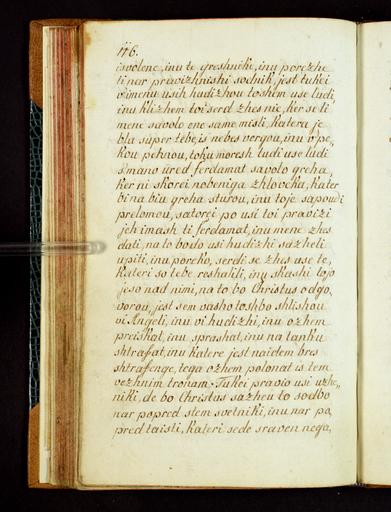 176.
isvolene, inu te greshnike, inu porezhe
ti nar pravizhnishi sodnik, jest tukei
vimenu usih hudizhou toshem use ludi,
inu klizhem zoiserd zhes nie, ker se ti
mene savolo ene same misli, katera je
bla super tebe, is nebes vergou, inu v pe„
kou pehnou, toku moresh tudi use ludi
smano ured ferdamat savolo greha,
ker ni skorei nobeniga zhloveka, kater
bi na biu greha sturou, inu toje sapoudi
prelomou, satorei po usi toi pravizi
jeh imash ti ferdamat, inu mene zhes
dati, na to bodo usi hudizhi sazheli
upiti, inu poreko, serdi se zhes use te,
kateri so tebe reshalili, inu skashi tojo
jeso nad nimi, na to bo Christus odgo„
vorou, jest sem vasho toshbo shlishou
vi Angeli, inu vi hudizhi, inu ozhem
preiskat, inu sprashat, inu na tanku
shtrafat, inu katere jest naidem bres
shtrafenge, tega ozhem polonat is tem
vezhnim tronam. Tukei pravio usi uzhe„
niki, de bo Christus sazheu to sodbo
nar popred stem svetniki, inu nar po„
pred taisti, kateri sede sraven nega,